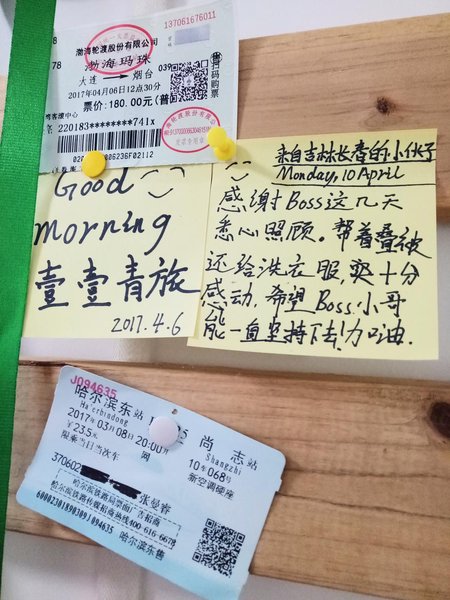 137061676011
78
渤海轮渡股份有限公司
渤海玛珠
大连 → 烟台
039
扫码购票
2017年04月06日12点30分
票价:180.00元(普
售
220183********741x
Good
morning
壹壹青旅
2017.4.6
来自吉林长春的小伙子
Monday, 10 April
感谢Boss这几天
悉心照顾。帮着叠被
还给洗衣服,实十分
感动,希望Boss小哥
能一直坚持下去!力口油.
J094635
哈尔滨东站
尚志站
Ha'erbindong
Shangzhi
2017年03月08日20:00开
10车068号
¥23.5元
网
新空调硬座
限乘当日当次车
370602
张曼睿
哈尔滨铁路局票面广告招商
哈尔滨铁路传媒招商热线400-616-6678
60002301890309J094635
哈尔滨东售